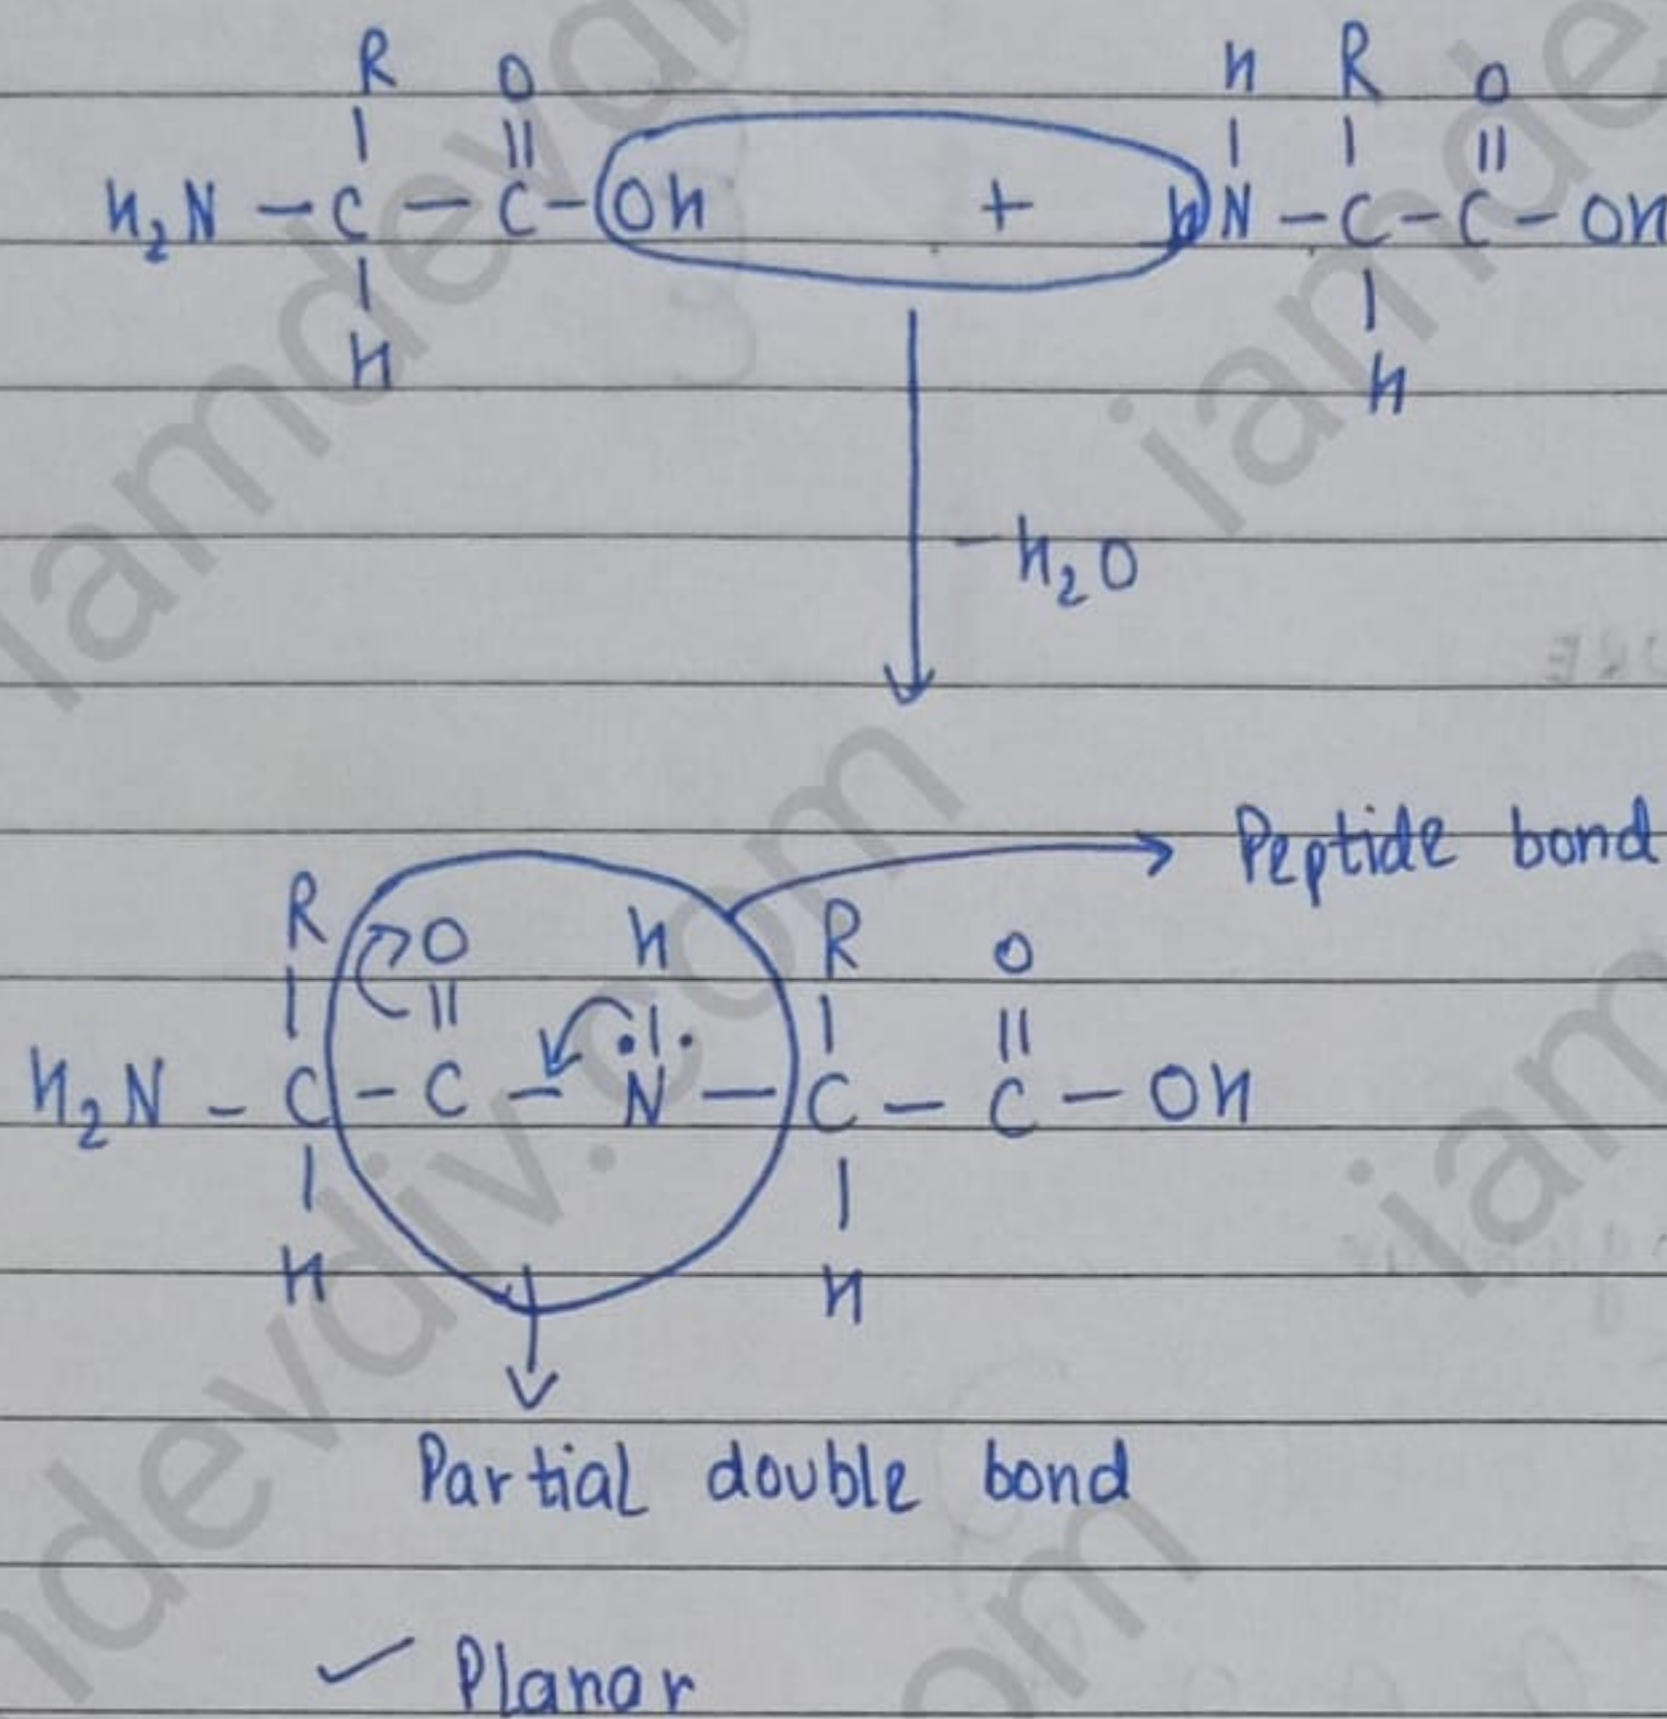 R O H R O
H₂N - C - C - OH + HN - C - C - OH
H H
- H₂O
Peptide bond
R O H R O
H₂N - C - C - N - C - C - OH
H H
Partial double bond
✓ Planar
iamdevdiv.com